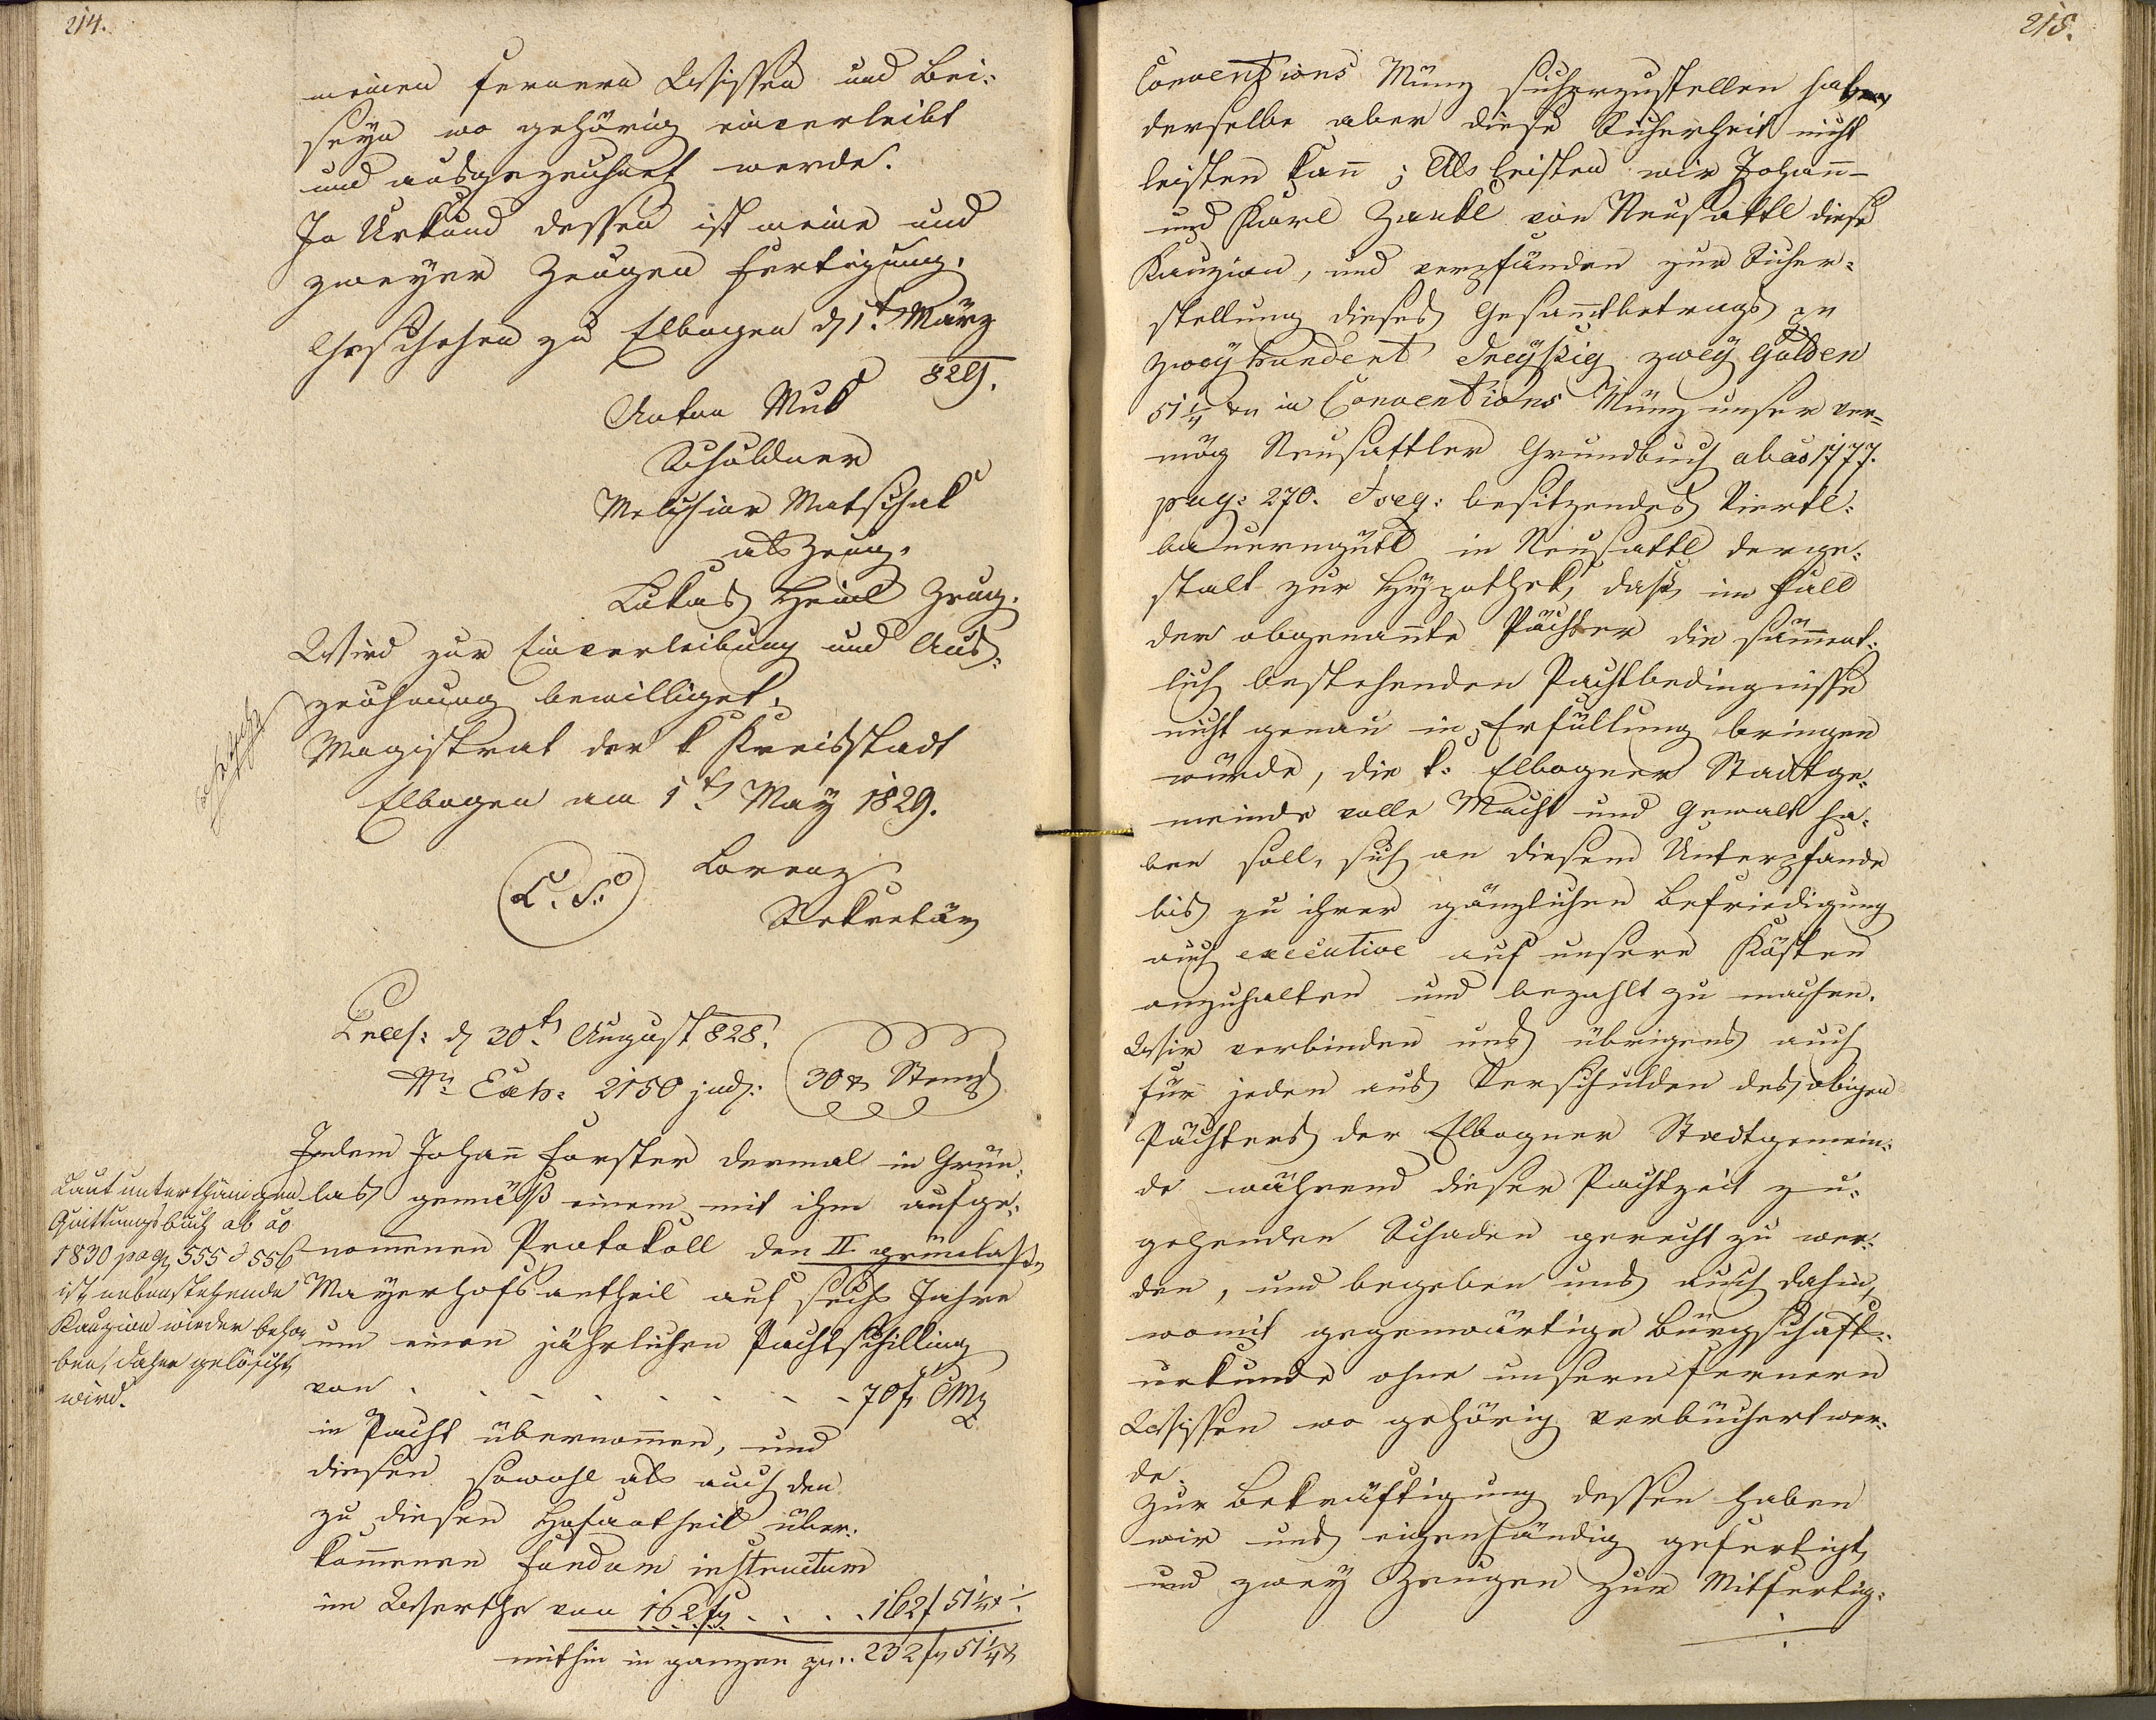 214.
meinen fernern Wissen und Bei=
seyn wo gehörig einverleibt
und ausgezeichnet werde.
In Urkund dessen ist meine und
zweyer Zeugen Fertigung.
Geschehen zu Elbogen d 1t. März
829.
Anton Muk
Schuldner
Melchior Matschak
als Zeug.
Lukas Heinl Zeug.
Wird zur Einverleibung und Aus=
zeichnung bewilliget.
Magistrat der k Kreisstadt
Elbogen am 1t May 1829.
L. S.
Lorenz
Sekretär
Præs: d 30t. August 828.
Nr. Exh: 2150 jud:
30 x Stempl
Indem Johann Forster dermal in Grün=
las gemäß einem mit ihm aufge=
nommenen Protokoll den II grünlaß
Mayerhofsantheil auf sechs Jahre
um einen jährlichen Pachtschilling
von . . . . . . . 70 f CMz
in Pacht übernommen, und
diesen sowohl als auch den
zu diesen Hofantheil über=
kommenen fundum instructum
im Werthe von 162 f . . . . 162 f 51 1/4 x
mithin in ganzen zu .. 232 f 51 1/4 x
Laut unterthänigen
Quittungsbuch ab ao
1830 pag 555 & 556
ist nebenstehende
Kauzion wieder beho
ben, daher gelöscht
wird.
215.
Conventions Münz sicherzustellen haben
derselbe aber diese Sicherheit nicht
leisten kann; Als leisten wir Johann
und Karl Zankl von Neusattl diese
Kauzion, und verpfänden zur Sicher=
stellung dieses Gesammtbetrags pr
zweyhundert dreyßig zwey Gulden
51 1/4 xr in Conventions Münz unser ver=
mög Neusattler Grundbuch ab ao 1777.
pag: 270. & seq: besitzendes Viertl=
bauerngütl in Neusattl derge=
stalt zur Hypothek, daß im Fall
der obgenannte Pächter die sämmt=
lich bestehenden Pachtbedingnisse
nicht genau in Erfüllung bringen
würde, die k: Elbogner Stadtge=
meinde volle Macht und Gewalt ha=
ben soll, sich an diesem Unterpfande
bis zu ihrer gänzlichen Befriedigung
auch executive auf unsere Kösten
anzuhalten und bezahlt zu machen.
Wir verbinden uns übrigens auch
für jeden aus Verschulden des obigen
Pächters der Elbogner Stadtgemein=
de während dieser Pachtzeit zu=
gehenden Schaden gerecht zu wer=
den, und begeben uns auch dahin,
womit gegenwärtige Bürgschafts=
urkunde ohne unsern fernern
Wissen wo gehörig verbüchert wer=
de
Zur Bekräftigung dessen haben
wir uns eigenhändig gefertigt,
und zwey Zeugen zur Mitfertig=